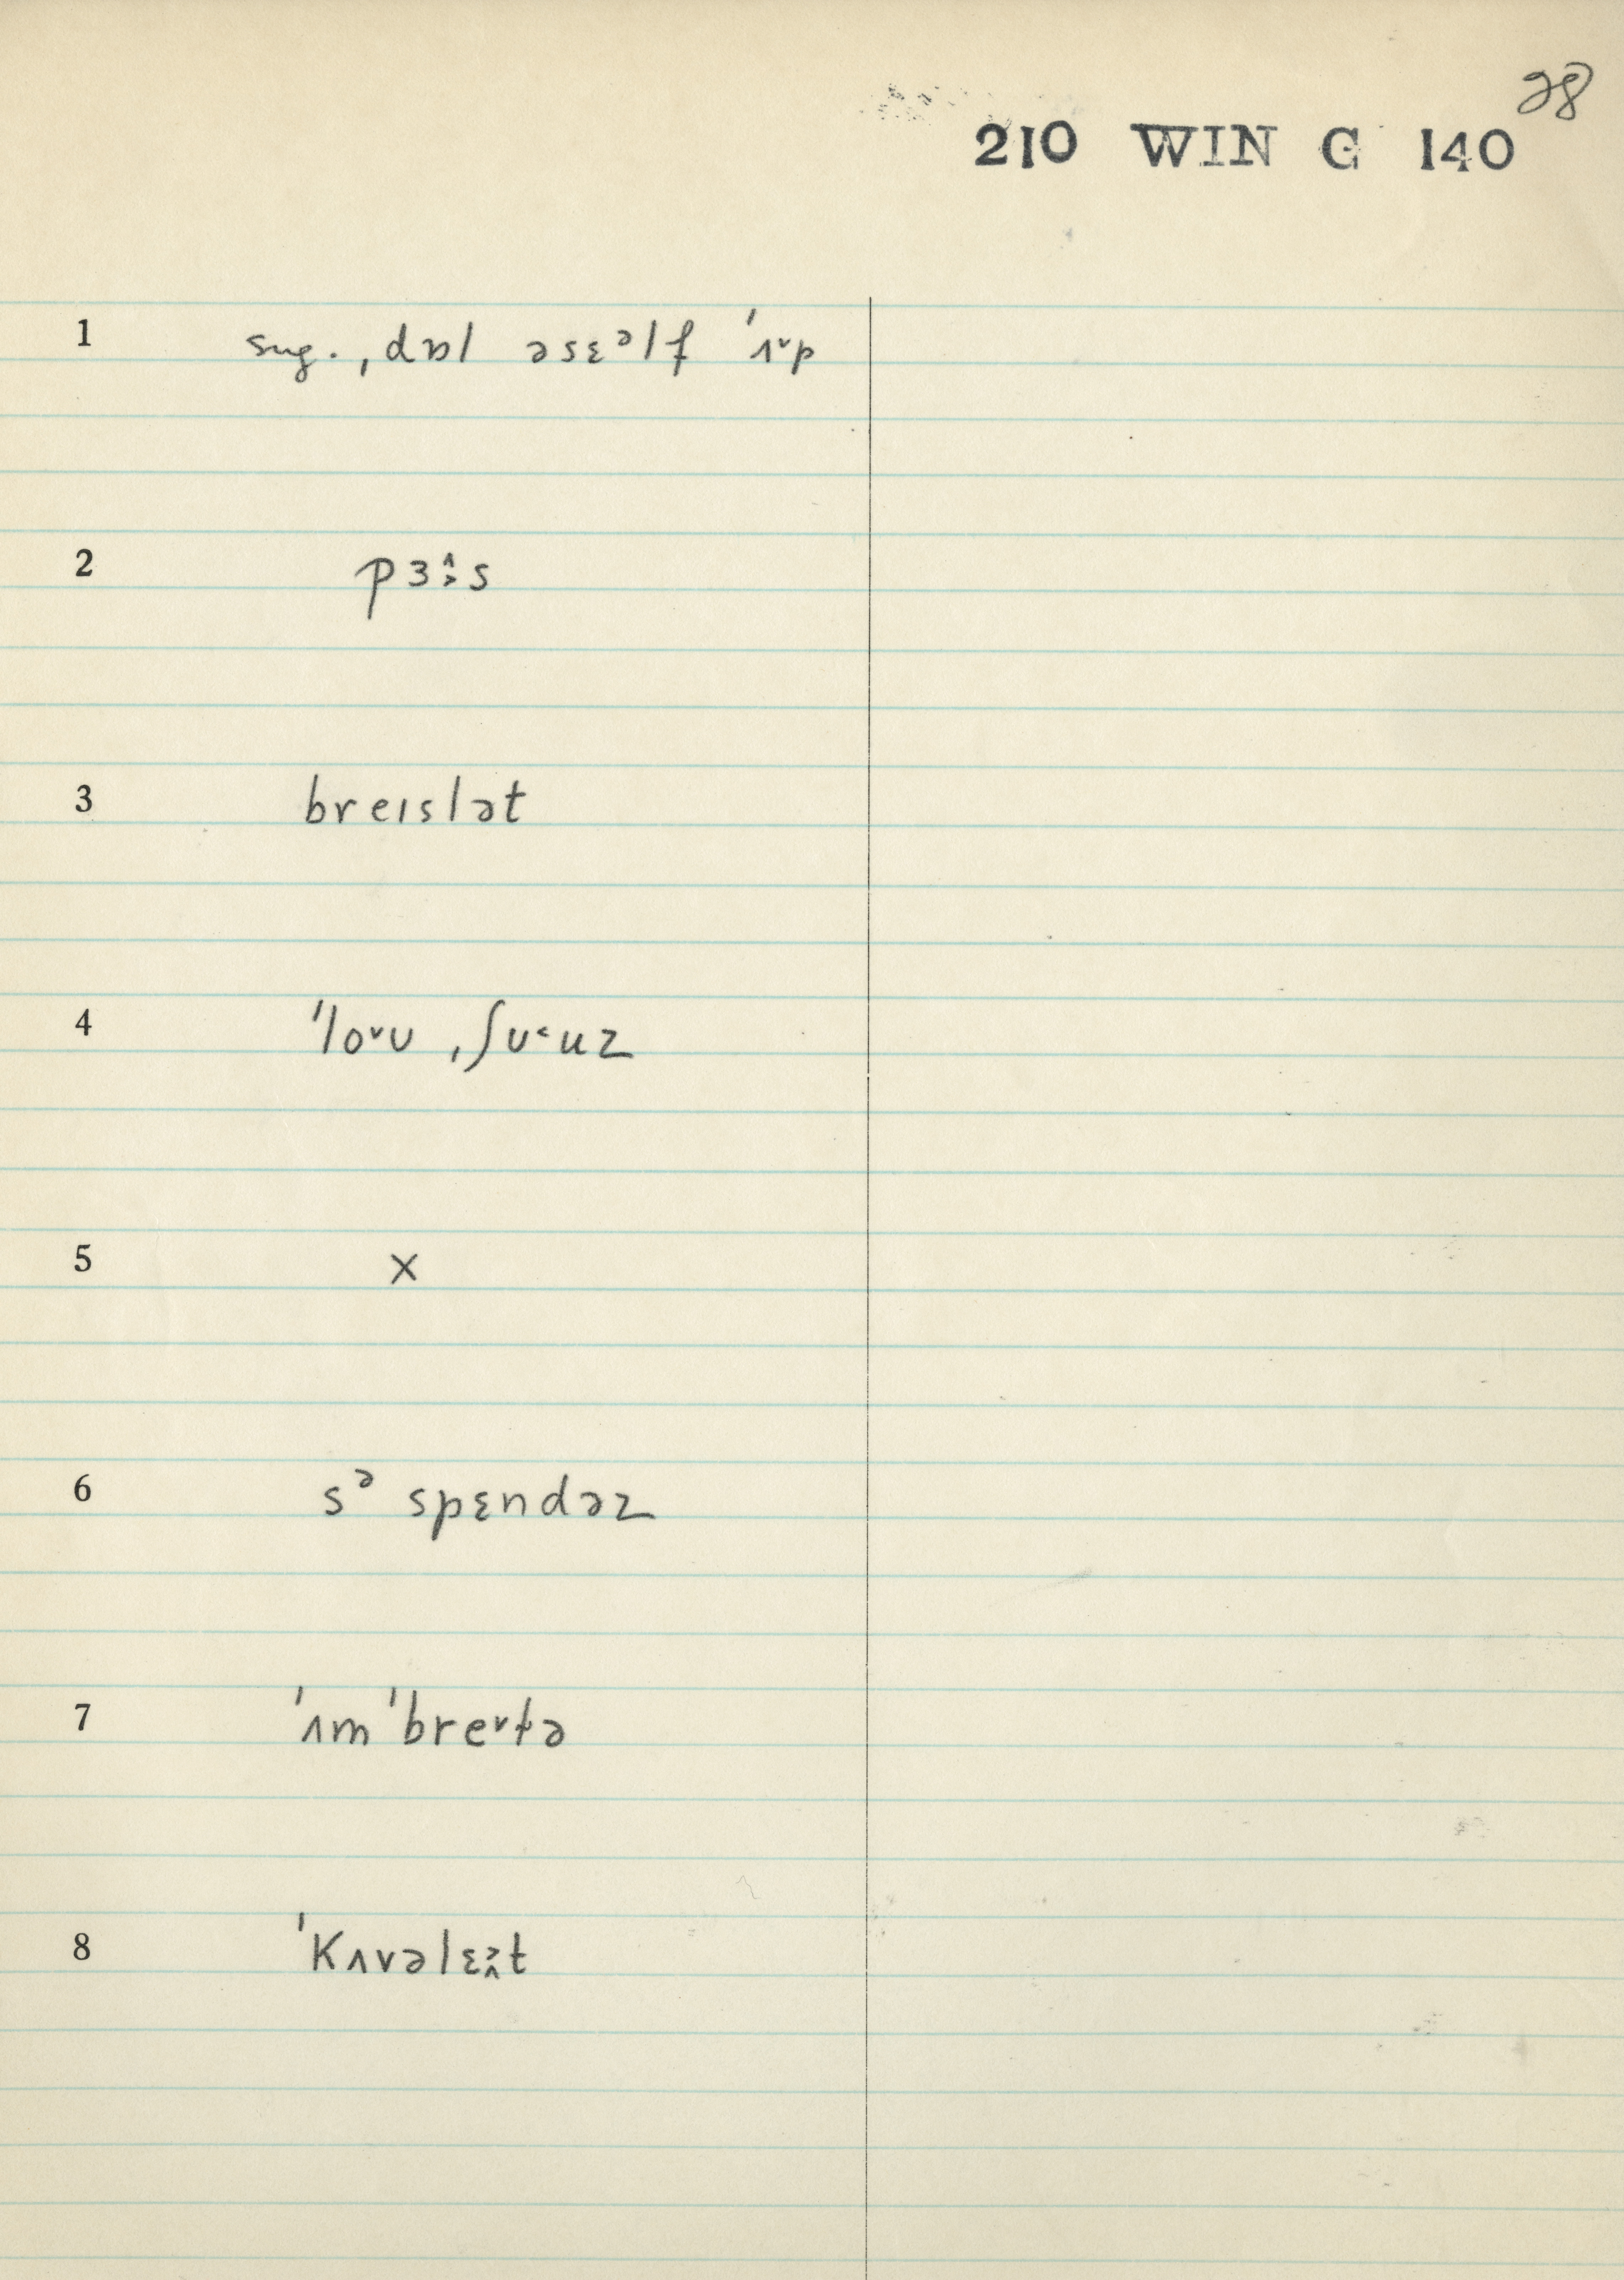 28
210 WIN G 140
1 sug. ˌdɒl əsɛᵊlf ˈʌ˅p
2 pɜ:s
3 breɪslət
4 ˈlo˅ʊ ˌʃʊ˂uz
5 x
6 sᵊ spɛndəz
7 ˈʌmˈbre˅t̬ə
8 ˈkʌvəlɛt